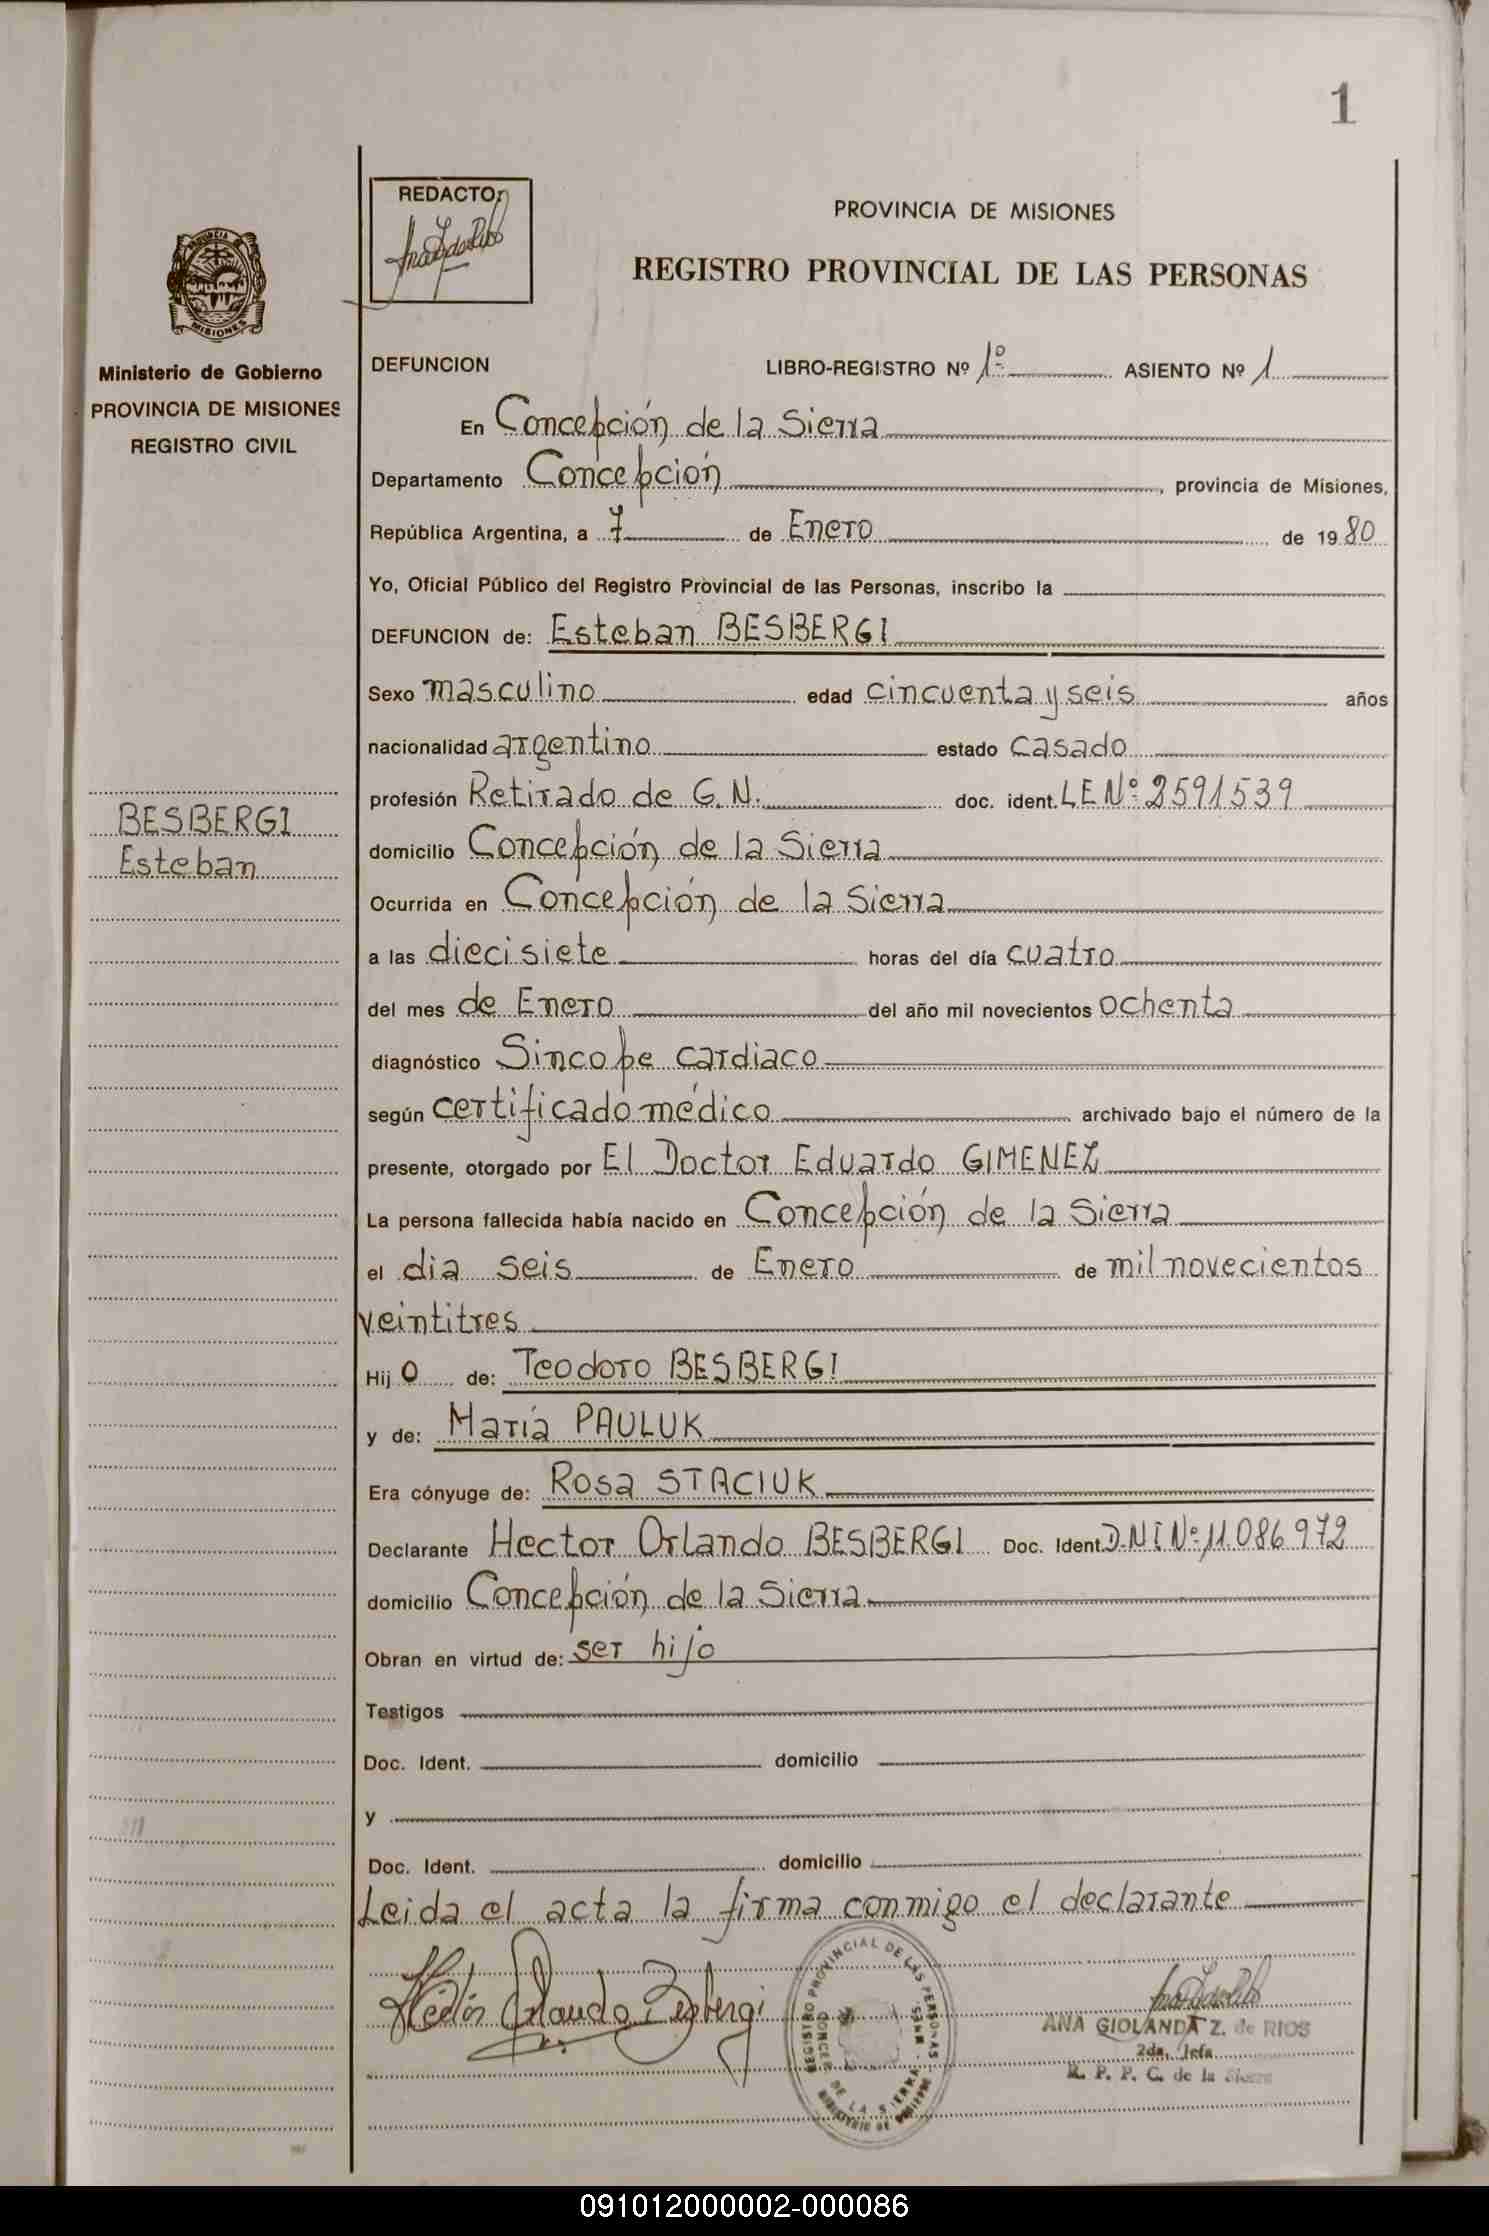 1
REDACTOR
PROVINCIA DE MISIONES
REGISTRO PROVINCIAL DE LAS PERSONAS
PROVINCIA
MISIONES
Ministerio de Gobierno
PROVINCIA DE MISIONES
REGISTRO CIVIL
BESBERGI
Esteban
DEFUNCION LIBRO-REGISTRO Nº 1º ASIENTO Nº 1
En Concepción de la Sierra
Departamento Concepción, provincia de Misiones,
República Argentina, a 7 de Enero de 1980
Yo, Oficial Público del Registro Provincial de las Personas, inscribo la
DEFUNCION de: Esteban BESBERGI
Sexo masculino edad cincuenta y seis años
nacionalidad argentino estado casado
profesión Retirado de G.N. doc. ident. LE Nº 2591539
domicilio Concepción de la Sierra
Ocurrida en Concepción de la Sierra
a las diecisiete horas del día cuatro
del mes de Enero del año mil novecientos ochenta
diagnóstico Sincope cardiaco
según certificado médico archivado bajo el número de la
presente, otorgado por El Doctor Eduardo GIMENEZ
La persona fallecida había nacido en Concepción de la Sierra
el dia seis de Enero de mil novecientos
veintitres
Hijo de: Teodoro BESBERGI
y de: María PAULUK
Era cónyuge de: Rosa STACIUK
Declarante Hector Orlando BESBERGI Doc. Ident. D.N.I Nº 11.086.972
domicilio Concepción de la Sierra
Obran en virtud de: ser hijo
Testigos
Doc. Ident. domicilio
y
Doc. Ident. domicilio
Leida el acta la firma conmigo el declarante
Héctor Orlando Besbergi
REGISTRO PROVINCIAL DE LAS PERSONAS
DE LA SIERRA
ANA GIOLANDA Z. de RIOS
2da. Jefa
R. P. P. C. de la Sierra
091012000002-000086